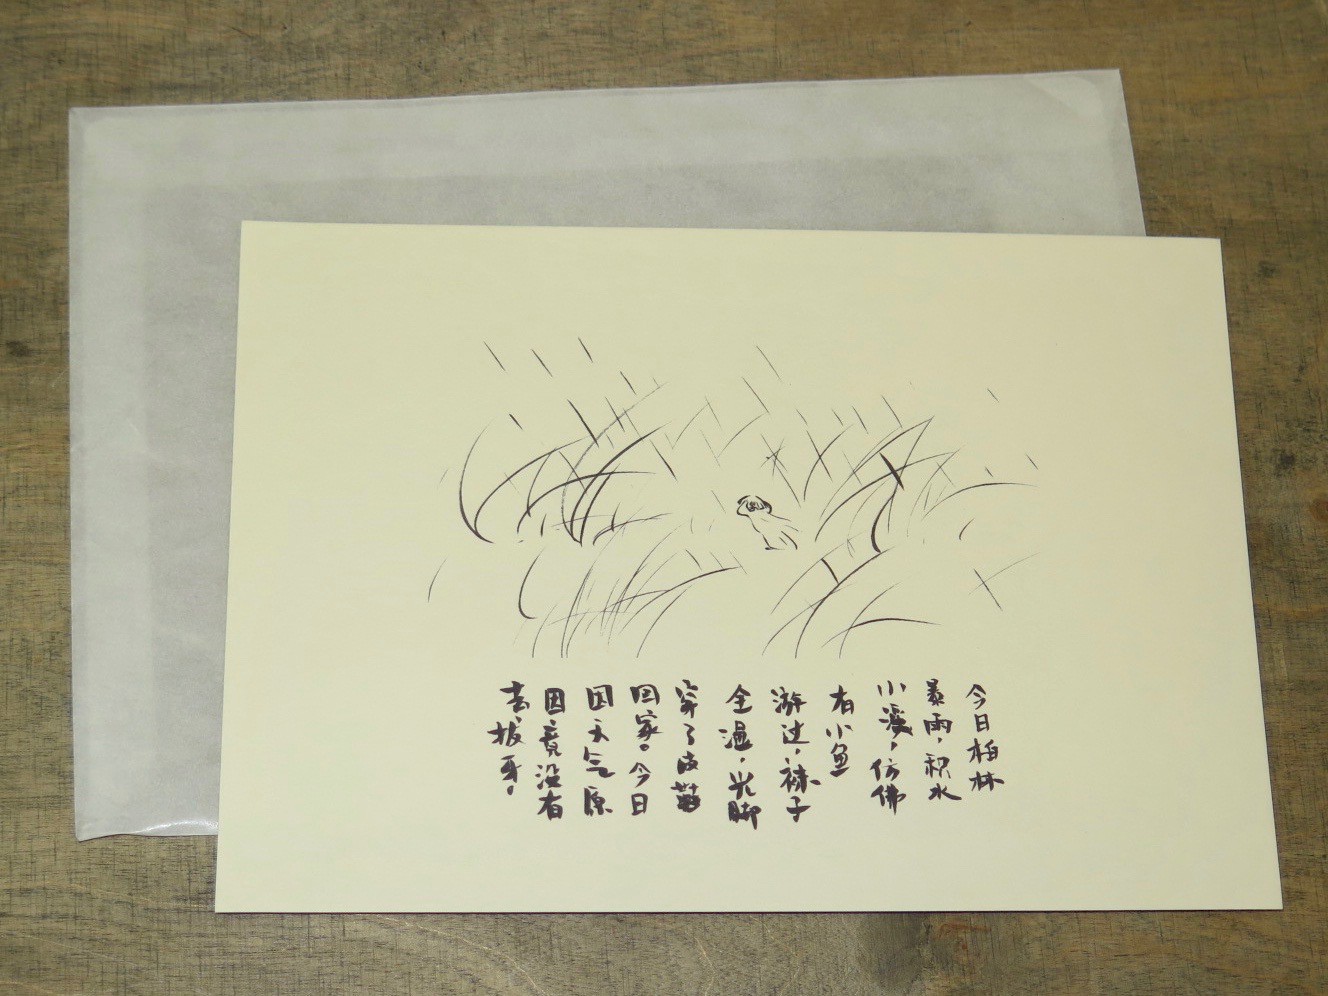 今日柏林
暴雨，积水
小溪，仿佛
有小鱼
游过，袜子
全湿，光脚
穿了皮鞋
回家。今日
因天气原
因竟没有
去拔牙。